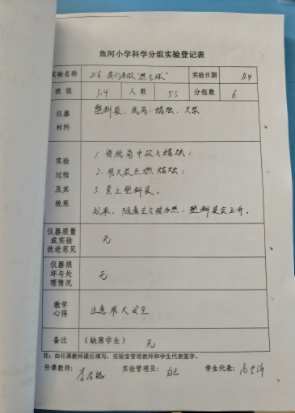 鱼河小学科学分组实验登记表
实验名称 2.6 我们来做"热气球" 实验日期
班级 3.4 人数 53 分组数 6
仪器材料 塑料袋、纸筒、蜡烛、火柴
实验过程及其效果
1.
2. 用火柴点燃蜡烛;
3. 套上塑料袋。
随着空气被加热,塑料袋会上升。
仪器质量或实验改进意见 无
仪器损坏与处理情况 无
教学心得 注意用火安全
备注 (缺席学生) 无
注:由任课教师课后填写,实验室管理教师和学生代表签字。
任课教师: 实验管理员: 学生代表: